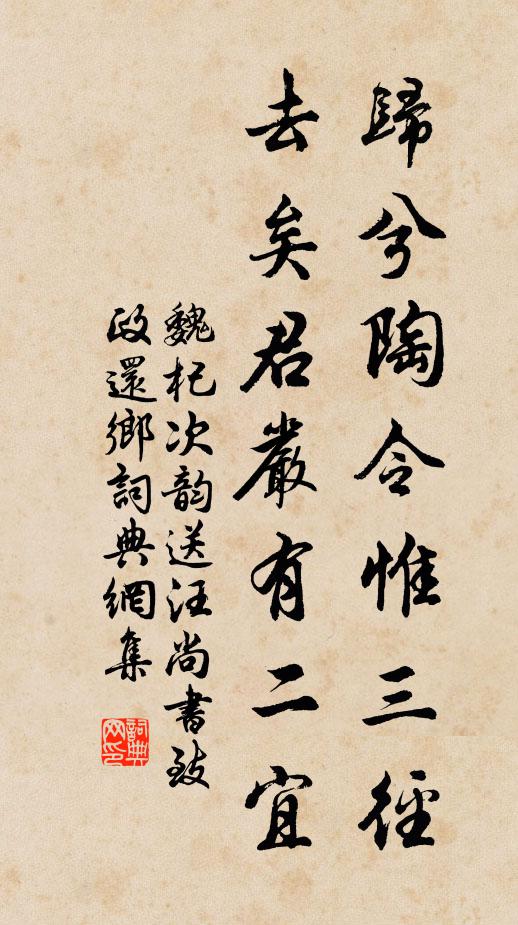 歸兮陶令惟三徑
去矣君嚴有二宜
魏杞次韵送汪尚書致
政還鄉詞典網集
詞典網印